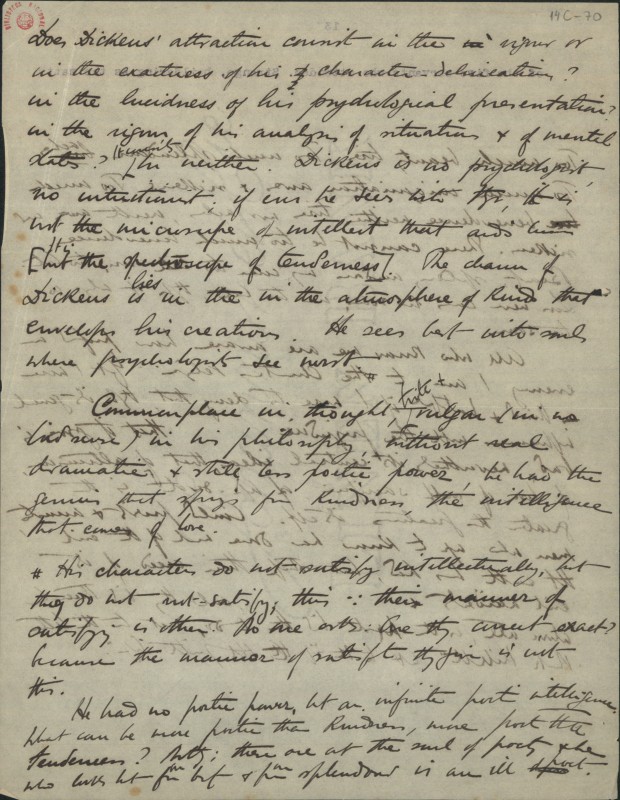 14C-70
Does Dickens' attraction consist in the vigour or
in the exactness of his character-delineation?
in the lucidness of his psychological presentation?
in the rigour of his analysis of situations & of mental
states? In neither. Dickens is no psychologist,
no intuitionist: if ever he sees into it is
not the microscope of intellect that aids
[but the spectroscope of tenderness]. The charm of
Dickens lies in the in the atmosphere of kind that
envelops his creations. He sees best into souls
where psychologists see worst #
Commonplace in thought, trite & vulgar in
in his philosophy, without real
dramatic, & still less poetic power, he had the
genius that springs from kindness, the intelligence
that comes of love.
# His characters do not satisfy intellectually, but
they do not not-satisfy; this ∵ their manner of
satisfying is other. No one asks: Are they correct exact?
because the manner of satisfy is not
this.
He had no poetic power, but an infinite poetic intelligence,
what can be more poetic than kindness, more poetic than
tenderness? these are at the soul of poetry & he
who lacks but & splendour is an ill poet.